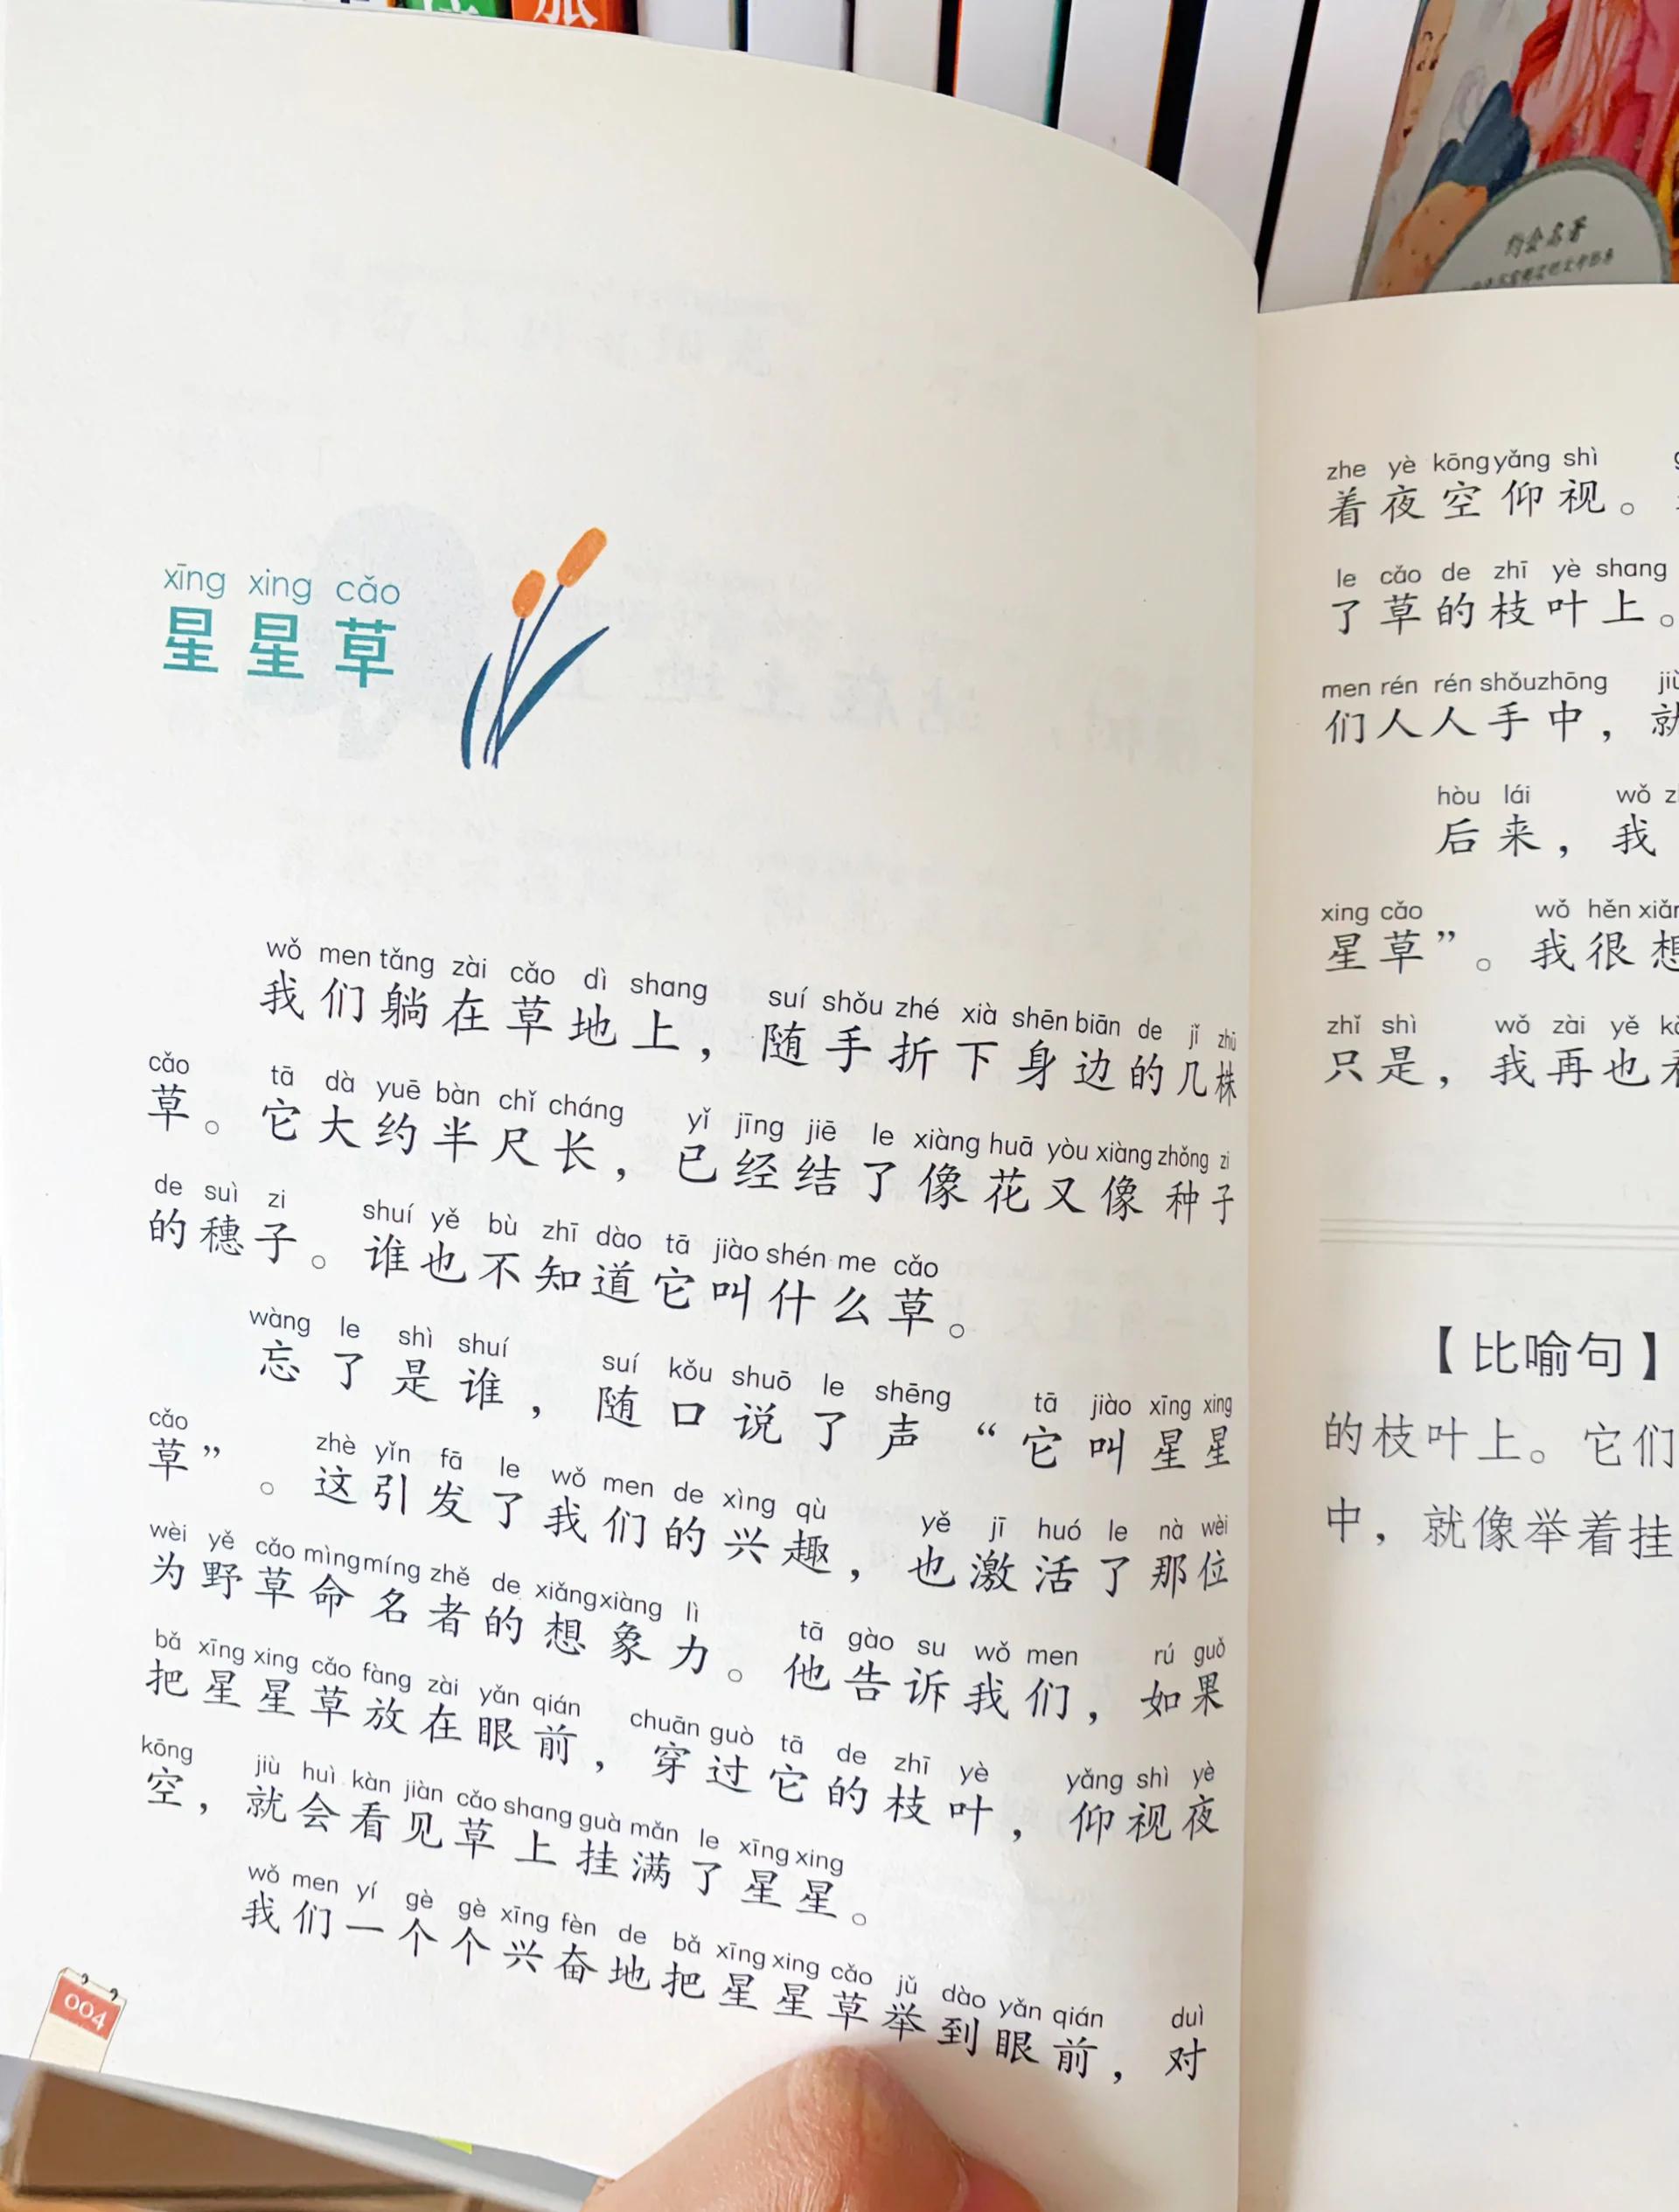 xīng xing cǎo
星星草
wǒ men tǎng zài cǎo dì shang suí shǒu zhé xià shēn biān de jǐ zhū
我们躺在草地上，随手折下身边的几株
cǎo tā dà yuē bàn chǐ cháng yǐ jīng jiē le xiàng huā yòu xiàng zhǒng zi
草。它大约半尺长，已经结了像花又像种子
de suì zi shuí yě bù zhī dào tā jiào shén me cǎo
的穗子。谁也不知道它叫什么草。
wàng le shì shuí suí kǒu shuō le shēng tā jiào xīng xing
忘了是谁，随口说了声“它叫星星
cǎo zhè yǐn fā le wǒ men de xìng qù yě jī huó le nà wèi
草”。这引发了我们的兴趣，也激活了那位
wèi yě cǎo mìng míng zhě de xiǎng xiàng lì tā gào su wǒ men rú guǒ
为野草命名者的想象力。他告诉我们，如果
bǎ xīng xing cǎo fàng zài yǎn qián chuān guò tā de zhī yè yǎng shì yè
把星星草放在眼前，穿过它的枝叶，仰视夜
kōng jiù huì kàn jiàn cǎo shang guà mǎn le xīng xing
空，就会看见草上挂满了星星。
wǒ men yí gè gè xīng fèn de bǎ xīng xing cǎo jǔ dào yǎn qián duì
我们一个个兴奋地把星星草举到眼前，对
004
zhe yè kōng yǎng shì
着夜空仰视。
le cǎo de zhī yè shang
了草的枝叶上。
men rén rén shǒu zhōng jiù
们人人手中，就
hòu lái wǒ
后来，我
xing cǎo wǒ hěn xiǎng
星草”。我很想
zhǐ shì wǒ zài yě
只是，我再也
【比喻句】
的枝叶上。它们
中，就像举着挂
约会名著